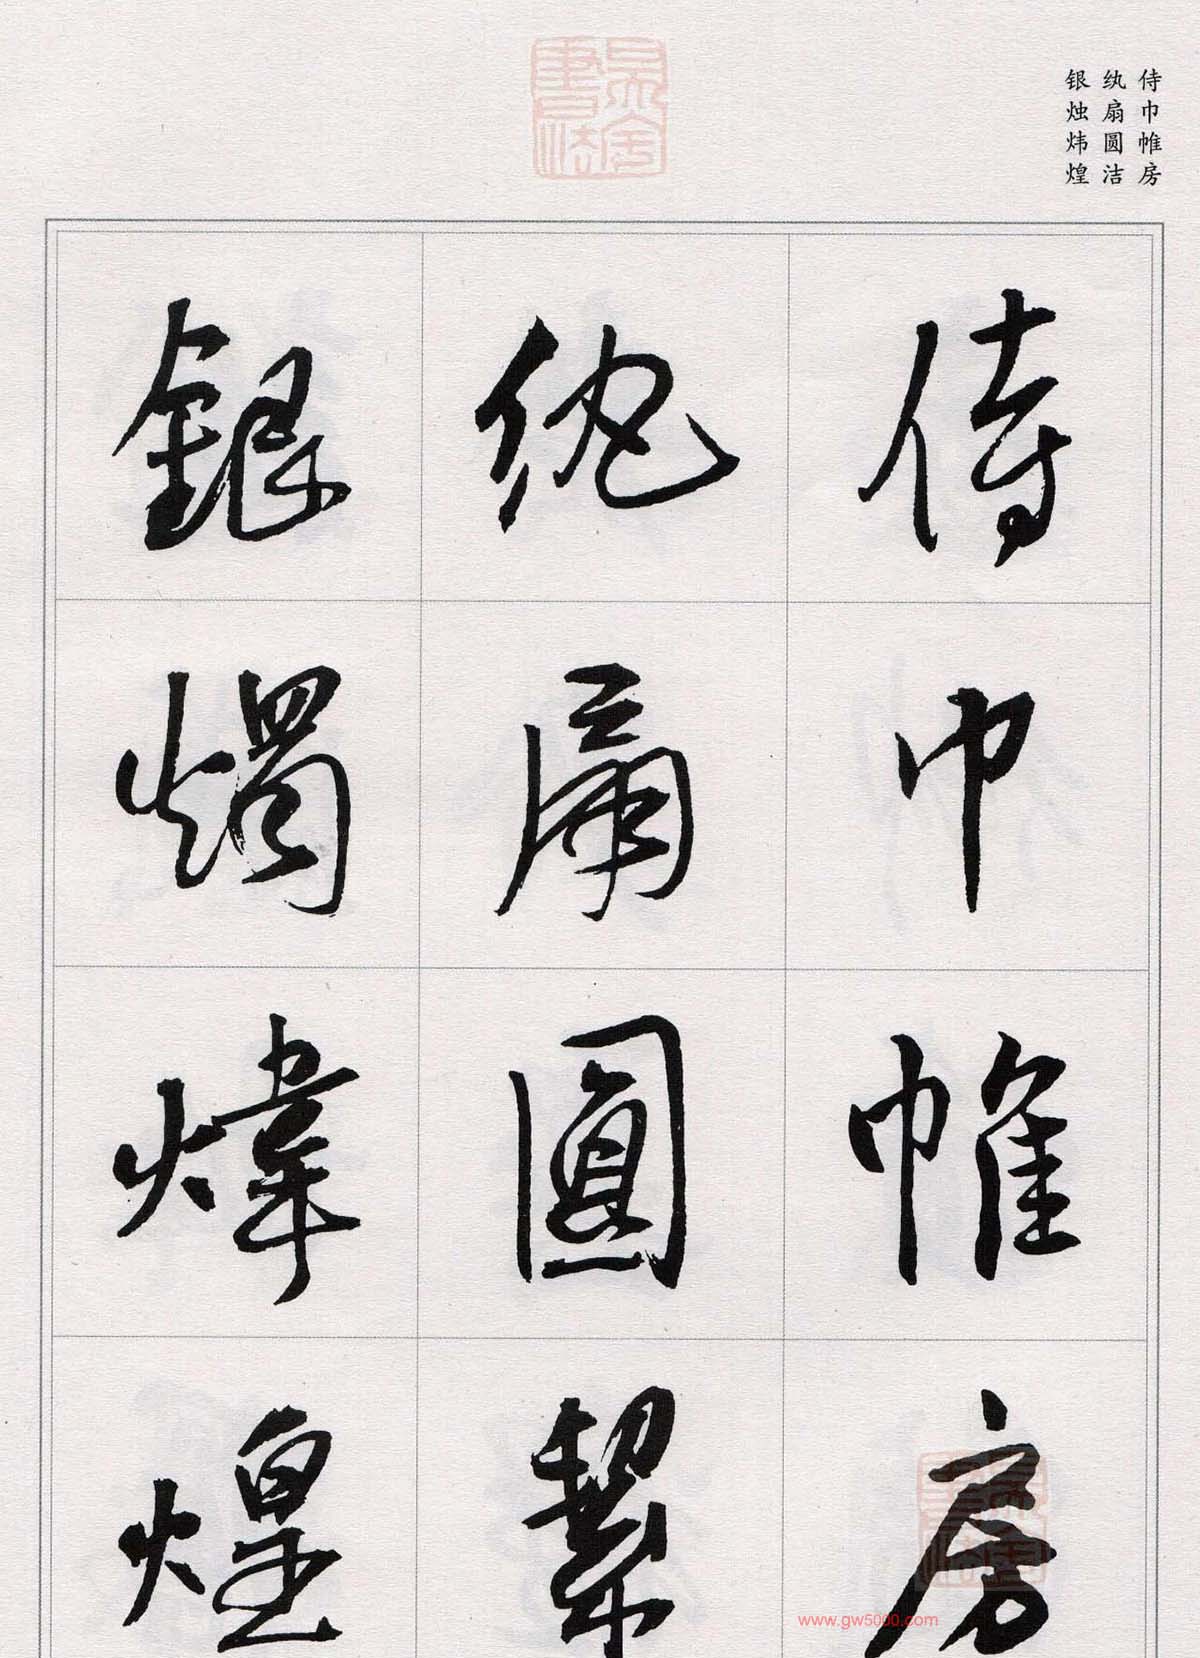 侍巾帷房
纨扇圆洁
银烛炜煌
侍巾帷房
紈扇圓絜
銀燭煒煌
www.gw5000.com